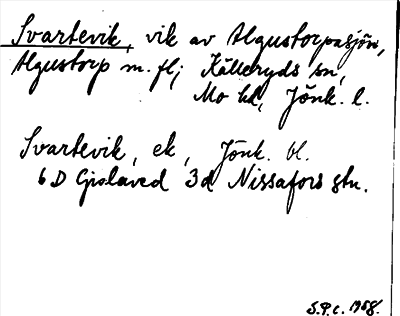 Svartevik, vik av Algustorpasjön,
Algustorp m.fl; Källeryds sn,
Mo hd, Jönk. l.
Svartevik, ek, Jönk. bl.
6 D Gislaved 3d Nissafors stn.
S.P.c. 1958.